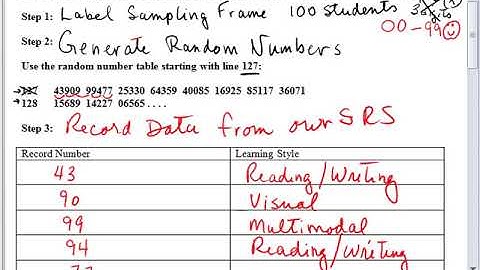 Step 1: Label Sampling Frame 100 students
00-99
Step 2: Generate Random Numbers
Use the random number table starting with line 127:
43909 99477 25330 64359 40085 16925 85117 36071
128 15689 14227 06565 . . . .
Step 3: Record Data from our SRS
Record Number Learning Style
43 Reading/Writing
90 Visual
99 Multimodal
94 Reading/Writing